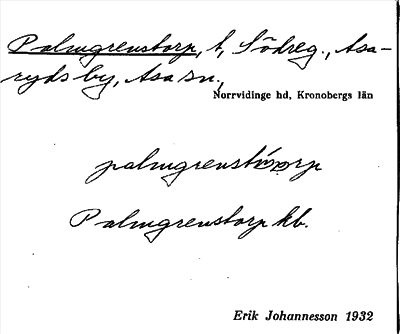 Palmgrenstorp, t, Södreg., Asa-
ryds by, Asa sn.,
Norrvidinge hd, Kronobergs län
Palmgrenstorp kb.
Erik Johannesson 1932